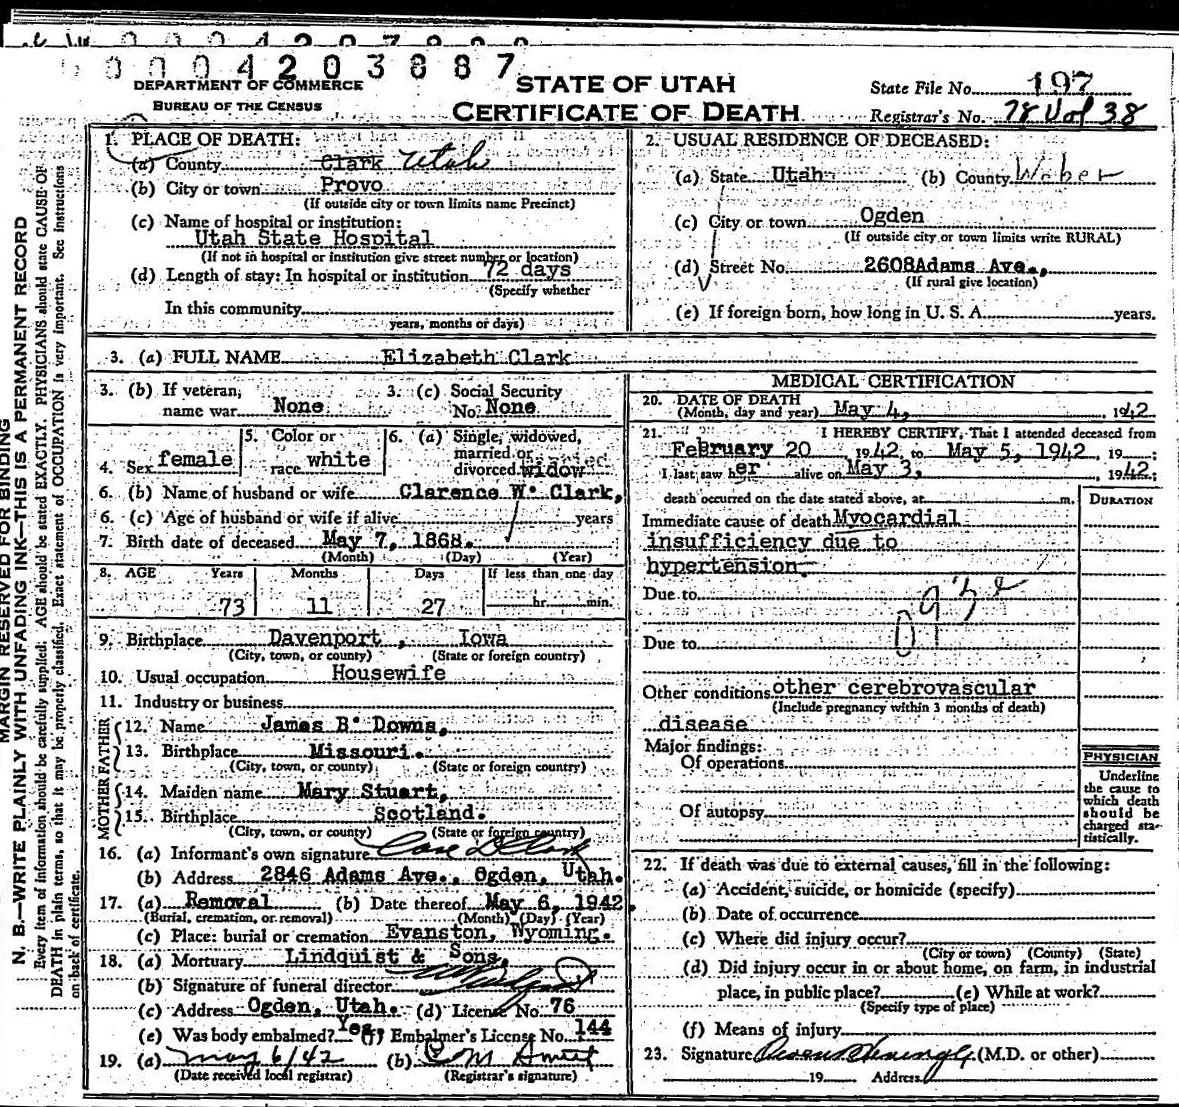 0 0 0 4 2 0 3 8 8 7
DEPARTMENT OF COMMERCE
BUREAU OF THE CENSUS
STATE OF UTAH
CERTIFICATE OF DEATH
State File No. 197
Registrar's No. 78 Vol 38
MARGIN RESERVED FOR BINDING
N. B.—WRITE PLAINLY WITH UNFADING INK—THIS IS A PERMANENT RECORD
Every item of information should be carefully supplied. AGE should be stated EXACTLY. PHYSICIANS should state CAUSE OF
DEATH in plain terms, so that it may be properly classified. Exact statement of OCCUPATION is very important. See Instructions
on back of certificate.
1. PLACE OF DEATH:
(a) County Clark Utah
(b) City or town Provo
(If outside city or town limits name Precinct)
(c) Name of hospital or institution:
Utah State Hospital
(If not in hospital or institution give street number or location)
(d) Length of stay: In hospital or institution 72 days
(Specify whether
In this community
years, months or days)
2. USUAL RESIDENCE OF DECEASED:
(a) State Utah (b) County Weber
(c) City or town Ogden
(If outside city or town limits write RURAL)
(d) Street No. 2608Adams Ave.,
(If rural give location)
(e) If foreign born, how long in U. S. A. years.
3. (a) FULL NAME Elizabeth Clark
3. (b) If veteran, name war None
3. (c) Social Security No. None
4. Sex female
5. Color or race white
6. (a) Single, widowed, married or divorced widow
6. (b) Name of husband or wife Clarence W. Clark,
6. (c) Age of husband or wife if alive years
7. Birth date of deceased May 7, 1868.
(Month) (Day) (Year)
8. AGE Years Months Days If less than one day
73 11 27 hr. min.
9. Birthplace Davenport, Iowa
(City, town, or county) (State or foreign country)
10. Usual occupation Housewife
11. Industry or business
FATHER
12. Name James B. Downs,
13. Birthplace Missouri.
(City, town, or county) (State or foreign country)
MOTHER
14. Maiden name Mary Stuart,
15. Birthplace Scotland.
(City, town, or county) (State or foreign country)
16. (a) Informant's own signature
(b) Address 2846 Adams Ave., Ogden, Utah.
17. (a) Removal (b) Date thereof May 6, 1942.
(Burial, cremation, or removal) (Month) (Day) (Year)
(c) Place: burial or cremation Evanston, Wyoming.
18. (a) Mortuary Lindquist & Sons,
(b) Signature of funeral director
(c) Address Ogden, Utah. (d) License No. 76
(e) Was body embalmed? Yes, (f) Embalmer's License No. 144
19. (a) May 6/42 (b)
(Date received local registrar) (Registrar's signature)
MEDICAL CERTIFICATION
20. DATE OF DEATH
(Month, day and year) May 4, 1942
21. I HEREBY CERTIFY, That I attended deceased from
February 20 1942, to May 5, 1942, 19 ;
I last saw her alive on May 3, 1942;
death occurred on the date stated above, at m.
DURATION
Immediate cause of death Myocardial
insufficiency due to
hypertension
Due to
Due to
Other conditions other cerebrovascular
(Include pregnancy within 3 months of death)
disease
Major findings:
Of operations
Of autopsy
PHYSICIAN
Underline
the cause to
which death
should be
charged sta-
tistically.
22. If death was due to external causes, fill in the following:
(a) Accident, suicide, or homicide (specify)
(b) Date of occurrence
(c) Where did injury occur?
(City or town) (County) (State)
(d) Did injury occur in or about home, on farm, in industrial
place, in public place? (e) While at work?
(Specify type of place)
(f) Means of injury
23. Signature (M.D. or other)
19 Address